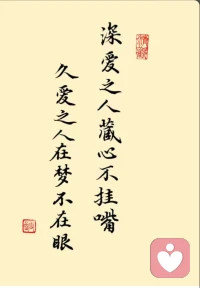 深爱之人藏心不挂嘴
久爱之人在梦不在眼